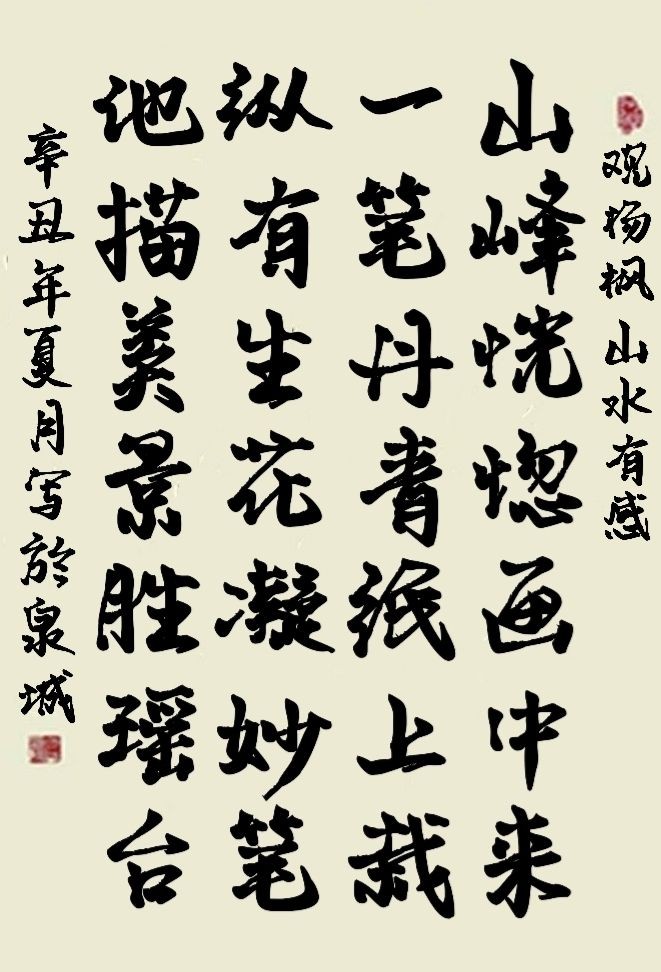 观杨枫山水有感
山峰恍惚画中来
一笔丹青纸上栽
纵有生花凝妙笔
他描美景胜瑶台
辛丑年夏月写於泉城